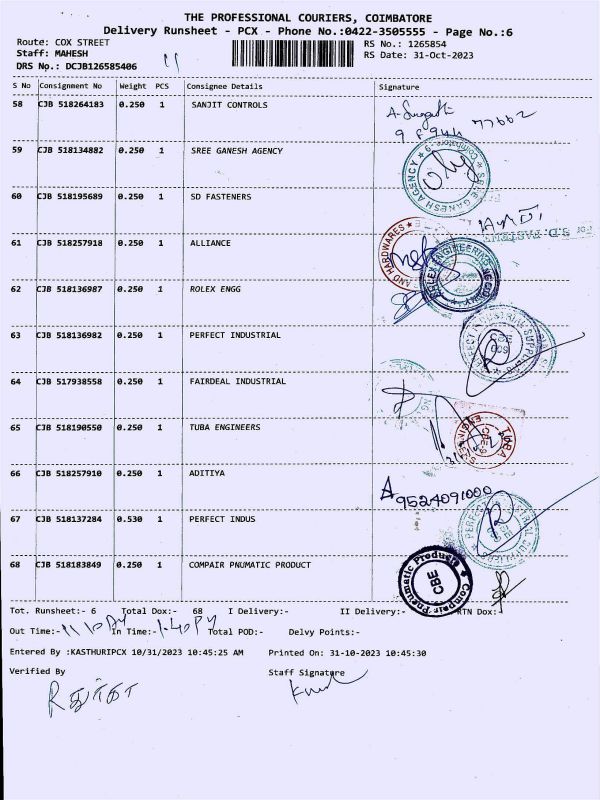 THE PROFESSIONAL COURIERS, COIMBATORE
Delivery Runsheet - PCX - Phone No.:0422-3505555 - Page No.:6
Route: COX STREET RS No.: 1265854
Staff: MAHESH RS Date: 31-Oct-2023
DRS No.: DCJB126585406
S No Consignment No Weight PCS Consignee Details Signature
58 CJB 518264183 0.250 1 SANJIT CONTROLS
77662
59 CJB 518134882 0.250 1 SREE GANESH AGENCY
SREE GANESH AGENCY
60 CJB 518195689 0.250 1 SD FASTENERS
For S.D. FASTENE
61 CJB 518257918 0.250 1 ALLIANCE
AND HARDWARES
ROLEX ENGINEERING
62 CJB 518136987 0.250 1 ROLEX ENGG
63 CJB 518136982 0.250 1 PERFECT INDUSTRIAL
PERFECT INDUSTRIAL SUPPLIERS
64 CJB 517938558 0.250 1 FAIRDEAL INDUSTRIAL
65 CJB 518190550 0.250 1 TUBA ENGINEERS
TUBA
66 CJB 518257910 0.250 1 ADITIYA
9524091000
67 CJB 518137284 0.530 1 PERFECT INDUS
68 CJB 518183849 0.250 1 COMPAIR PNUMATIC PRODUCT
Compair Pneumatic Products
CBE
Tot. Runsheet:- 6 Total Dox:- 68 I Delivery:- II Delivery:- RTN Dox:-
Out Time:- In Time:- 1.40 Total POD:- Delvy Points:-
Entered By :KASTHURIPCX 10/31/2023 10:45:25 AM Printed On: 31-10-2023 10:45:30
Verified By Staff Signature